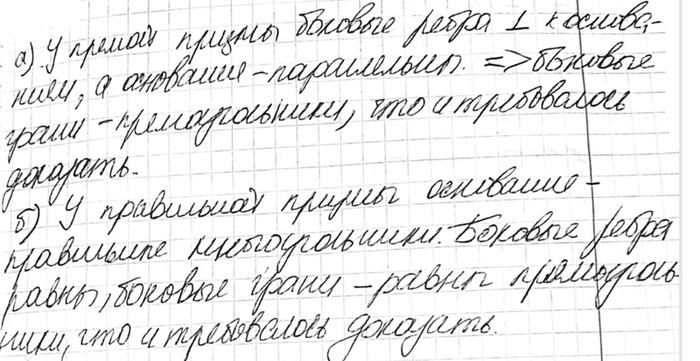 а) У прямой призмы боковые ребра ⊥ к основа-
нием, а основание - параллельны. => боковые
грани - прямоугольники, что и требовалось
доказать.
б) У правильной призмы основание -
правильные многоугольники. Боковые ребра
равны, боковые грани - равны прямоуголь-
ники, что и требовалось доказать.